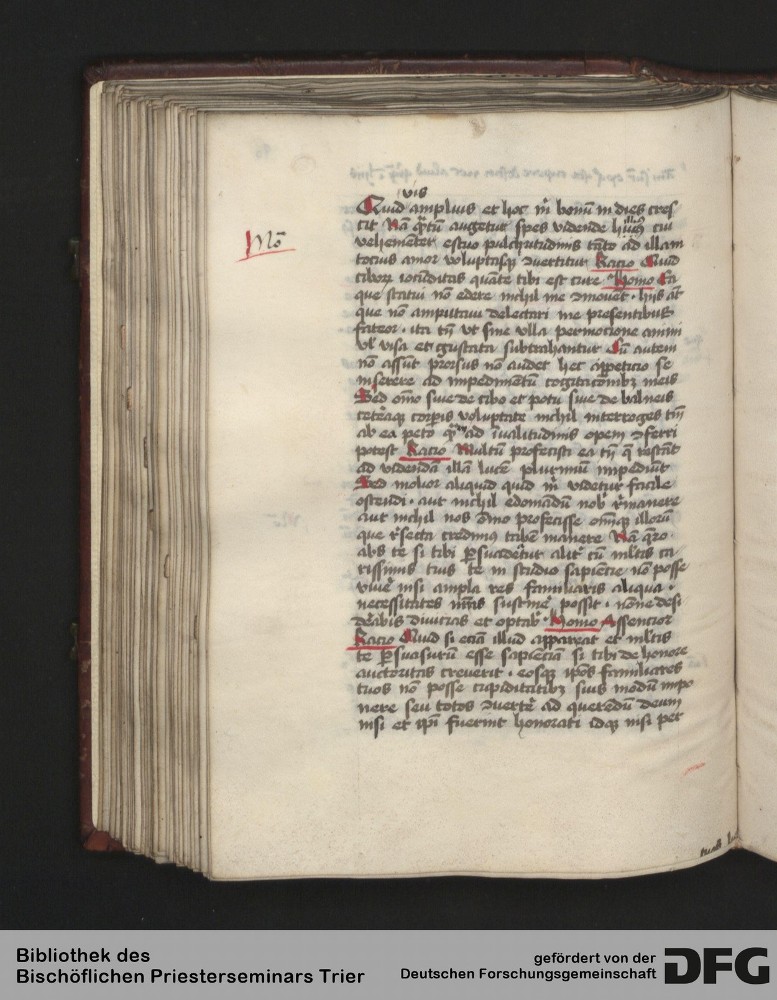 vis
Quid amplius et hoc m̄ bonū in dies cres
cit Nā q̄tū augetur spes vidende huius cui
vehementer estuo pulchritudinis tāto ad illam
Nō
totus amor voluptasqꝫ ꝯvertitur Racio Quid
ciborꝝ iocunditas quāte tibi est cure Homo Ea
que statui nō edere nichil me ꝯmovet · hiis aūt
que nō amputavi delectari me presentibus
fateor · ita tn̄ vt sine vlla permocione animi
vl' visa et gustata subtrahantur Cū autem
nō assūt prorsus nō audet hec appeticio se
inserere ad impedimētū cogitacionibꝫ meis
Sed om̄o sive de cibo et potu sive de balneis
ceteraqꝫ corꝑis voluptate nichil interroges tm̄
ab ea peto q̄tū ad valitudinis opem ꝯferri
potest Racio Multū profecisti ea tn̄ q̄ restāt
ad videndā illā lucē plurimū impediūt
Sed molior aliquid quid m̄ videtur facile
ostendi · aut nichil edomandū nob' r̄manere
aut nichil nos ōmo profecisse om̄iqꝫ illorū
que r̄secta credimꝰ taben manere Nā q̄ro
abs te si tibi ꝑsuadetur alit' cū ml'tis ca
rissimis tuis te in studio sapiencie nō posse
vivere nisi ampla res familiaris aliqua ·
necessitates vr̄as sustiner̄ possit · nonne desi
derabis divicias et optab' · Homo Assencior
Racio Quid si eciā illud appareat et ml'tis
te ꝑsuasurū esse sapienciā si tibi de honore
auctoritas creverit · eosqꝫ ip̄os familiares
tuos nō posse cupiditatibꝫ suis modū impo
nere seu totos ꝯverter̄ ad querēdū deum
nisi et ip̄i fuerint honorati idqꝫ nisi per
Bibliothek des
Bischöflichen Priesterseminars Trier
gefördert von der
Deutschen Forschungsgemeinschaft
DFG